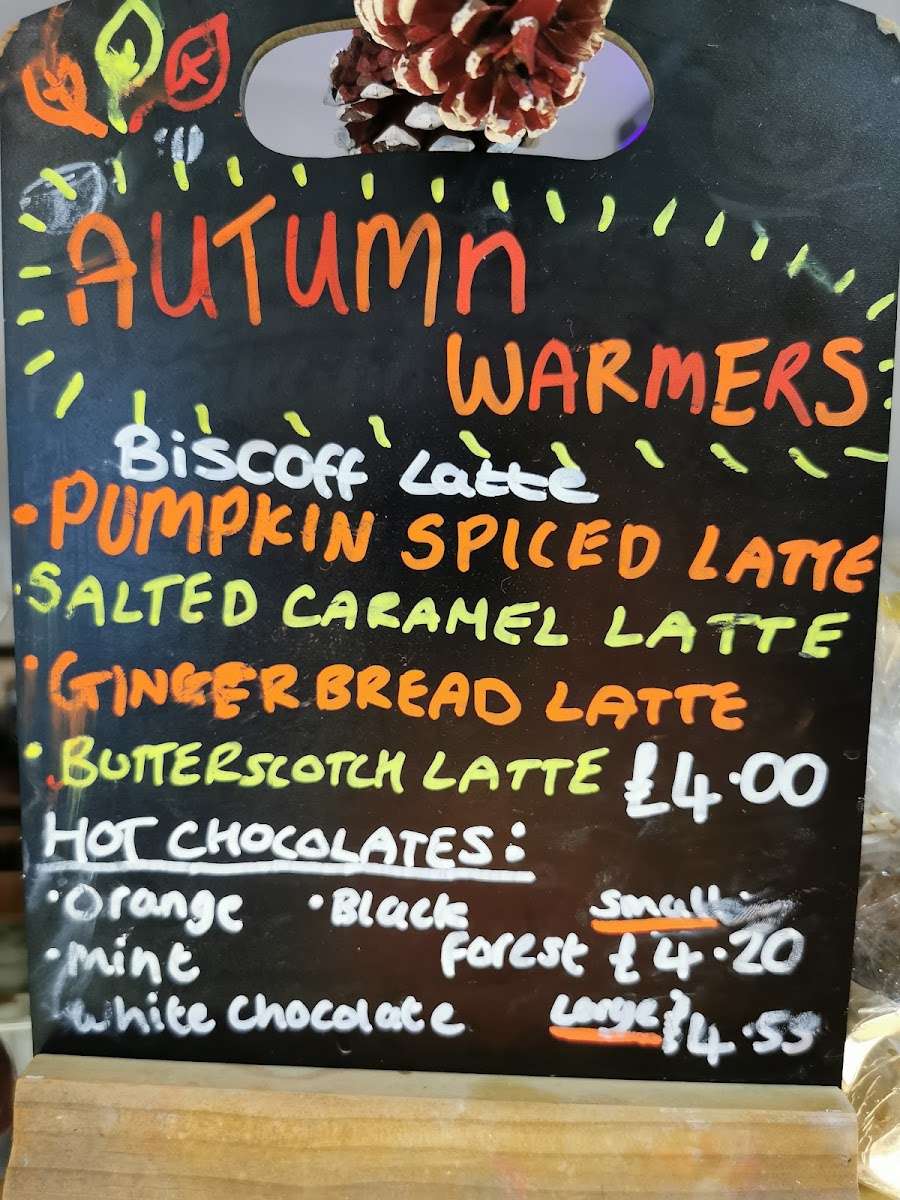 AUTUMN
WARMERS
Biscoff Latte
• PUMPKIN SPICED LATTE
• SALTED CARAMEL LATTE
• GINGERBREAD LATTE
• BUTTERSCOTCH LATTE £4.00
HOT CHOCOLATES:
• Orange • Black small
• Mint Forest £4.20
• White Chocolate Large £4.55